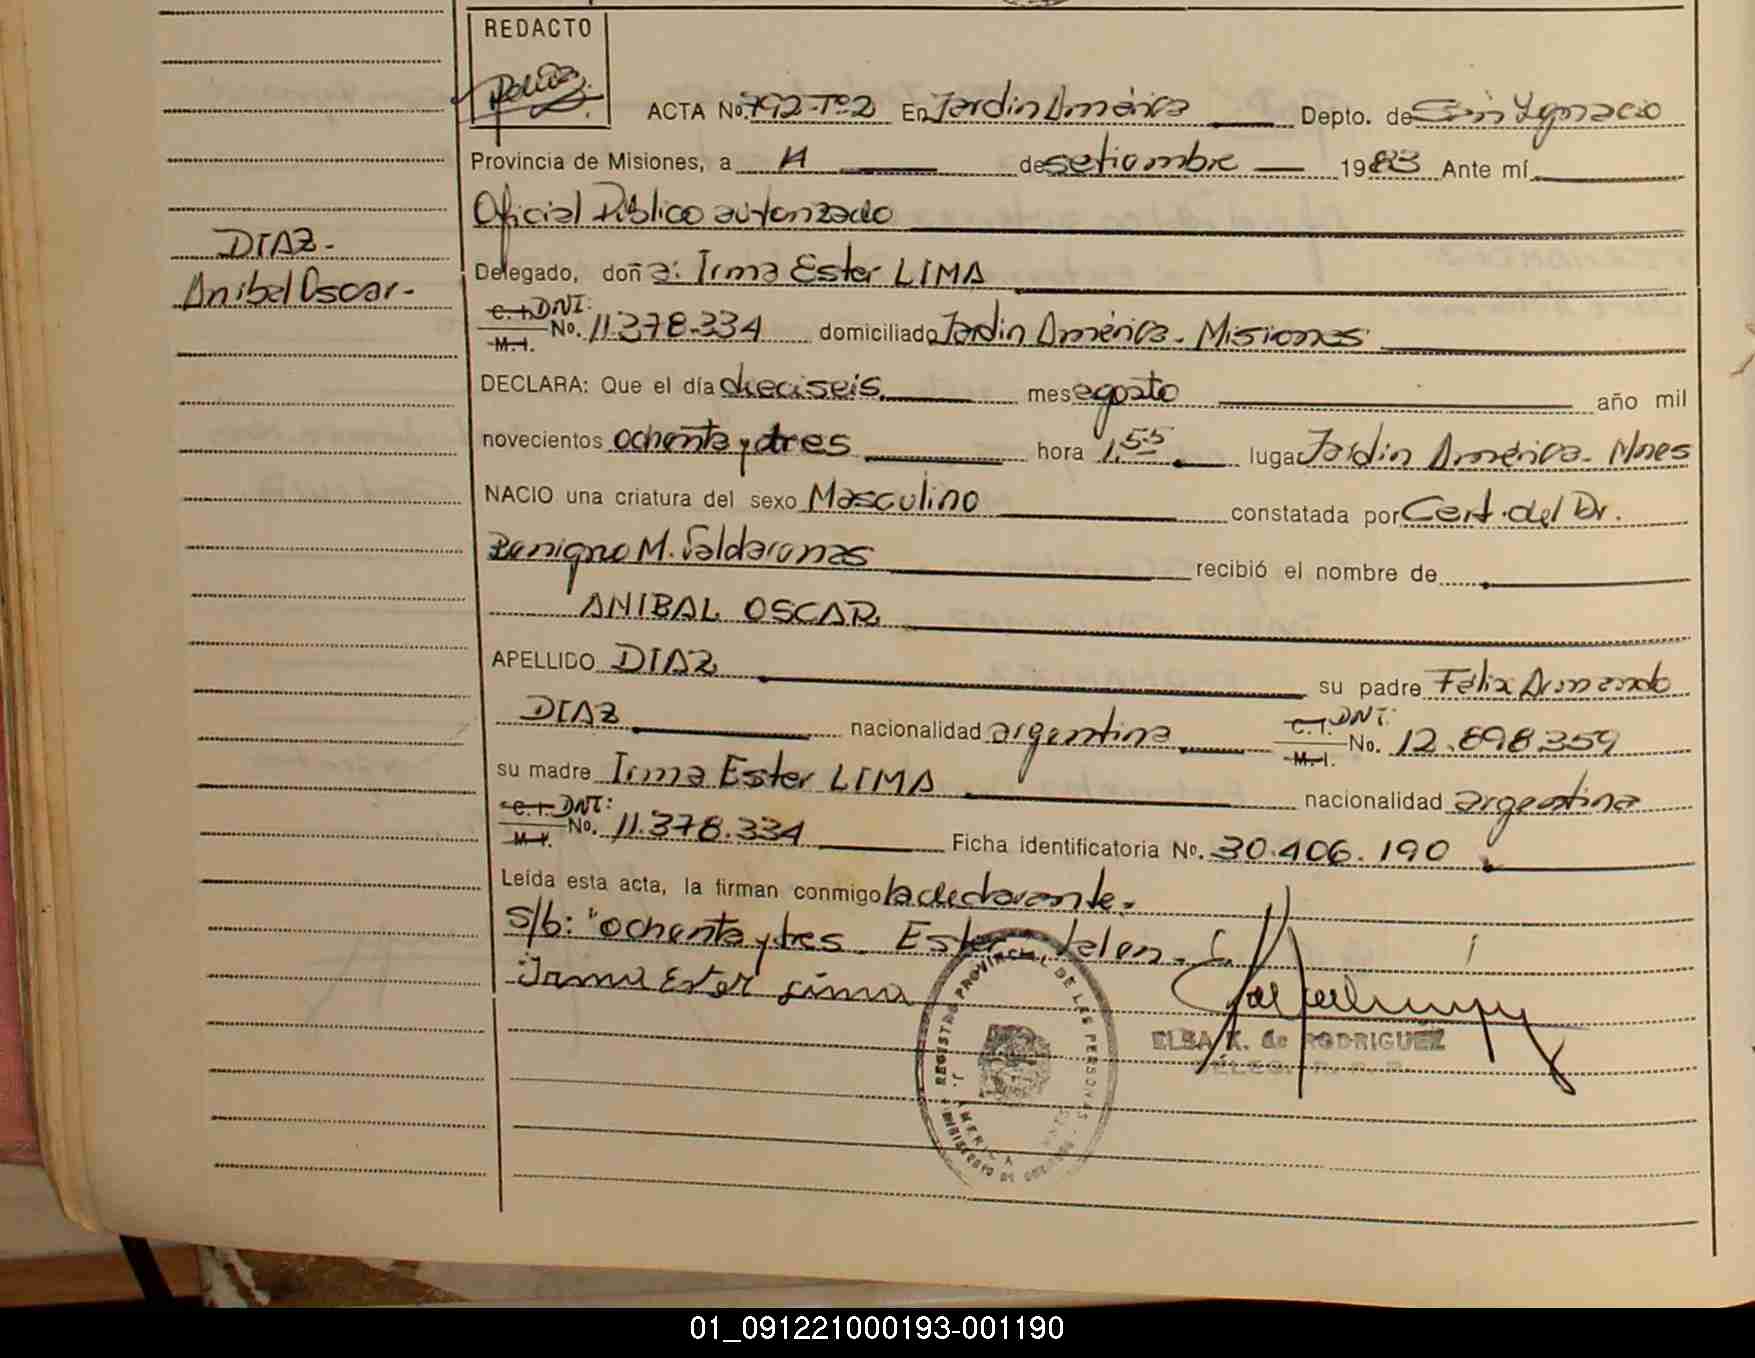 REDACTO
ACTA No. 792-Tº2 En Jardin América Depto. de San Ignacio
Provincia de Misiones, a 14 de setiembre 1983 Ante mí
Oficial Público autorizado
DIAZ.-
Anibal Oscar.-
Delegado, doña: Irma Ester LIMA
C.I. DNI:
M.I. No. 11.378.334 domiciliado Jardin América. Misiones
DECLARA: Que el día dieciseis mes agosto año mil
novecientos ochenta y tres hora 1,55 lugar Jardin América. Mnes
NACIO una criatura del sexo Masculino constatada por Cert. del Dr.
Benigno M. recibió el nombre de
ANIBAL OSCAR
APELLIDO DIAZ su padre Félix Armando
DIAZ nacionalidad argentina C.I. DNI: M.I. No. 12.898.359
su madre Irma Ester LIMA nacionalidad argentina
C.I. DNI:
M.I. No. 11.378.334 Ficha identificatoria No. 30.406.190
Leída esta acta, la firman conmigo la declarante.
S/b: "ochenta y tres. Ester. Valen.
Irma Ester Lima
REGISTRO PROVINCIAL DE LAS PERSONAS
J. AMERICA
MINISTERIO DE
ELBA K. de RODRIGUEZ
01_091221000193-001190